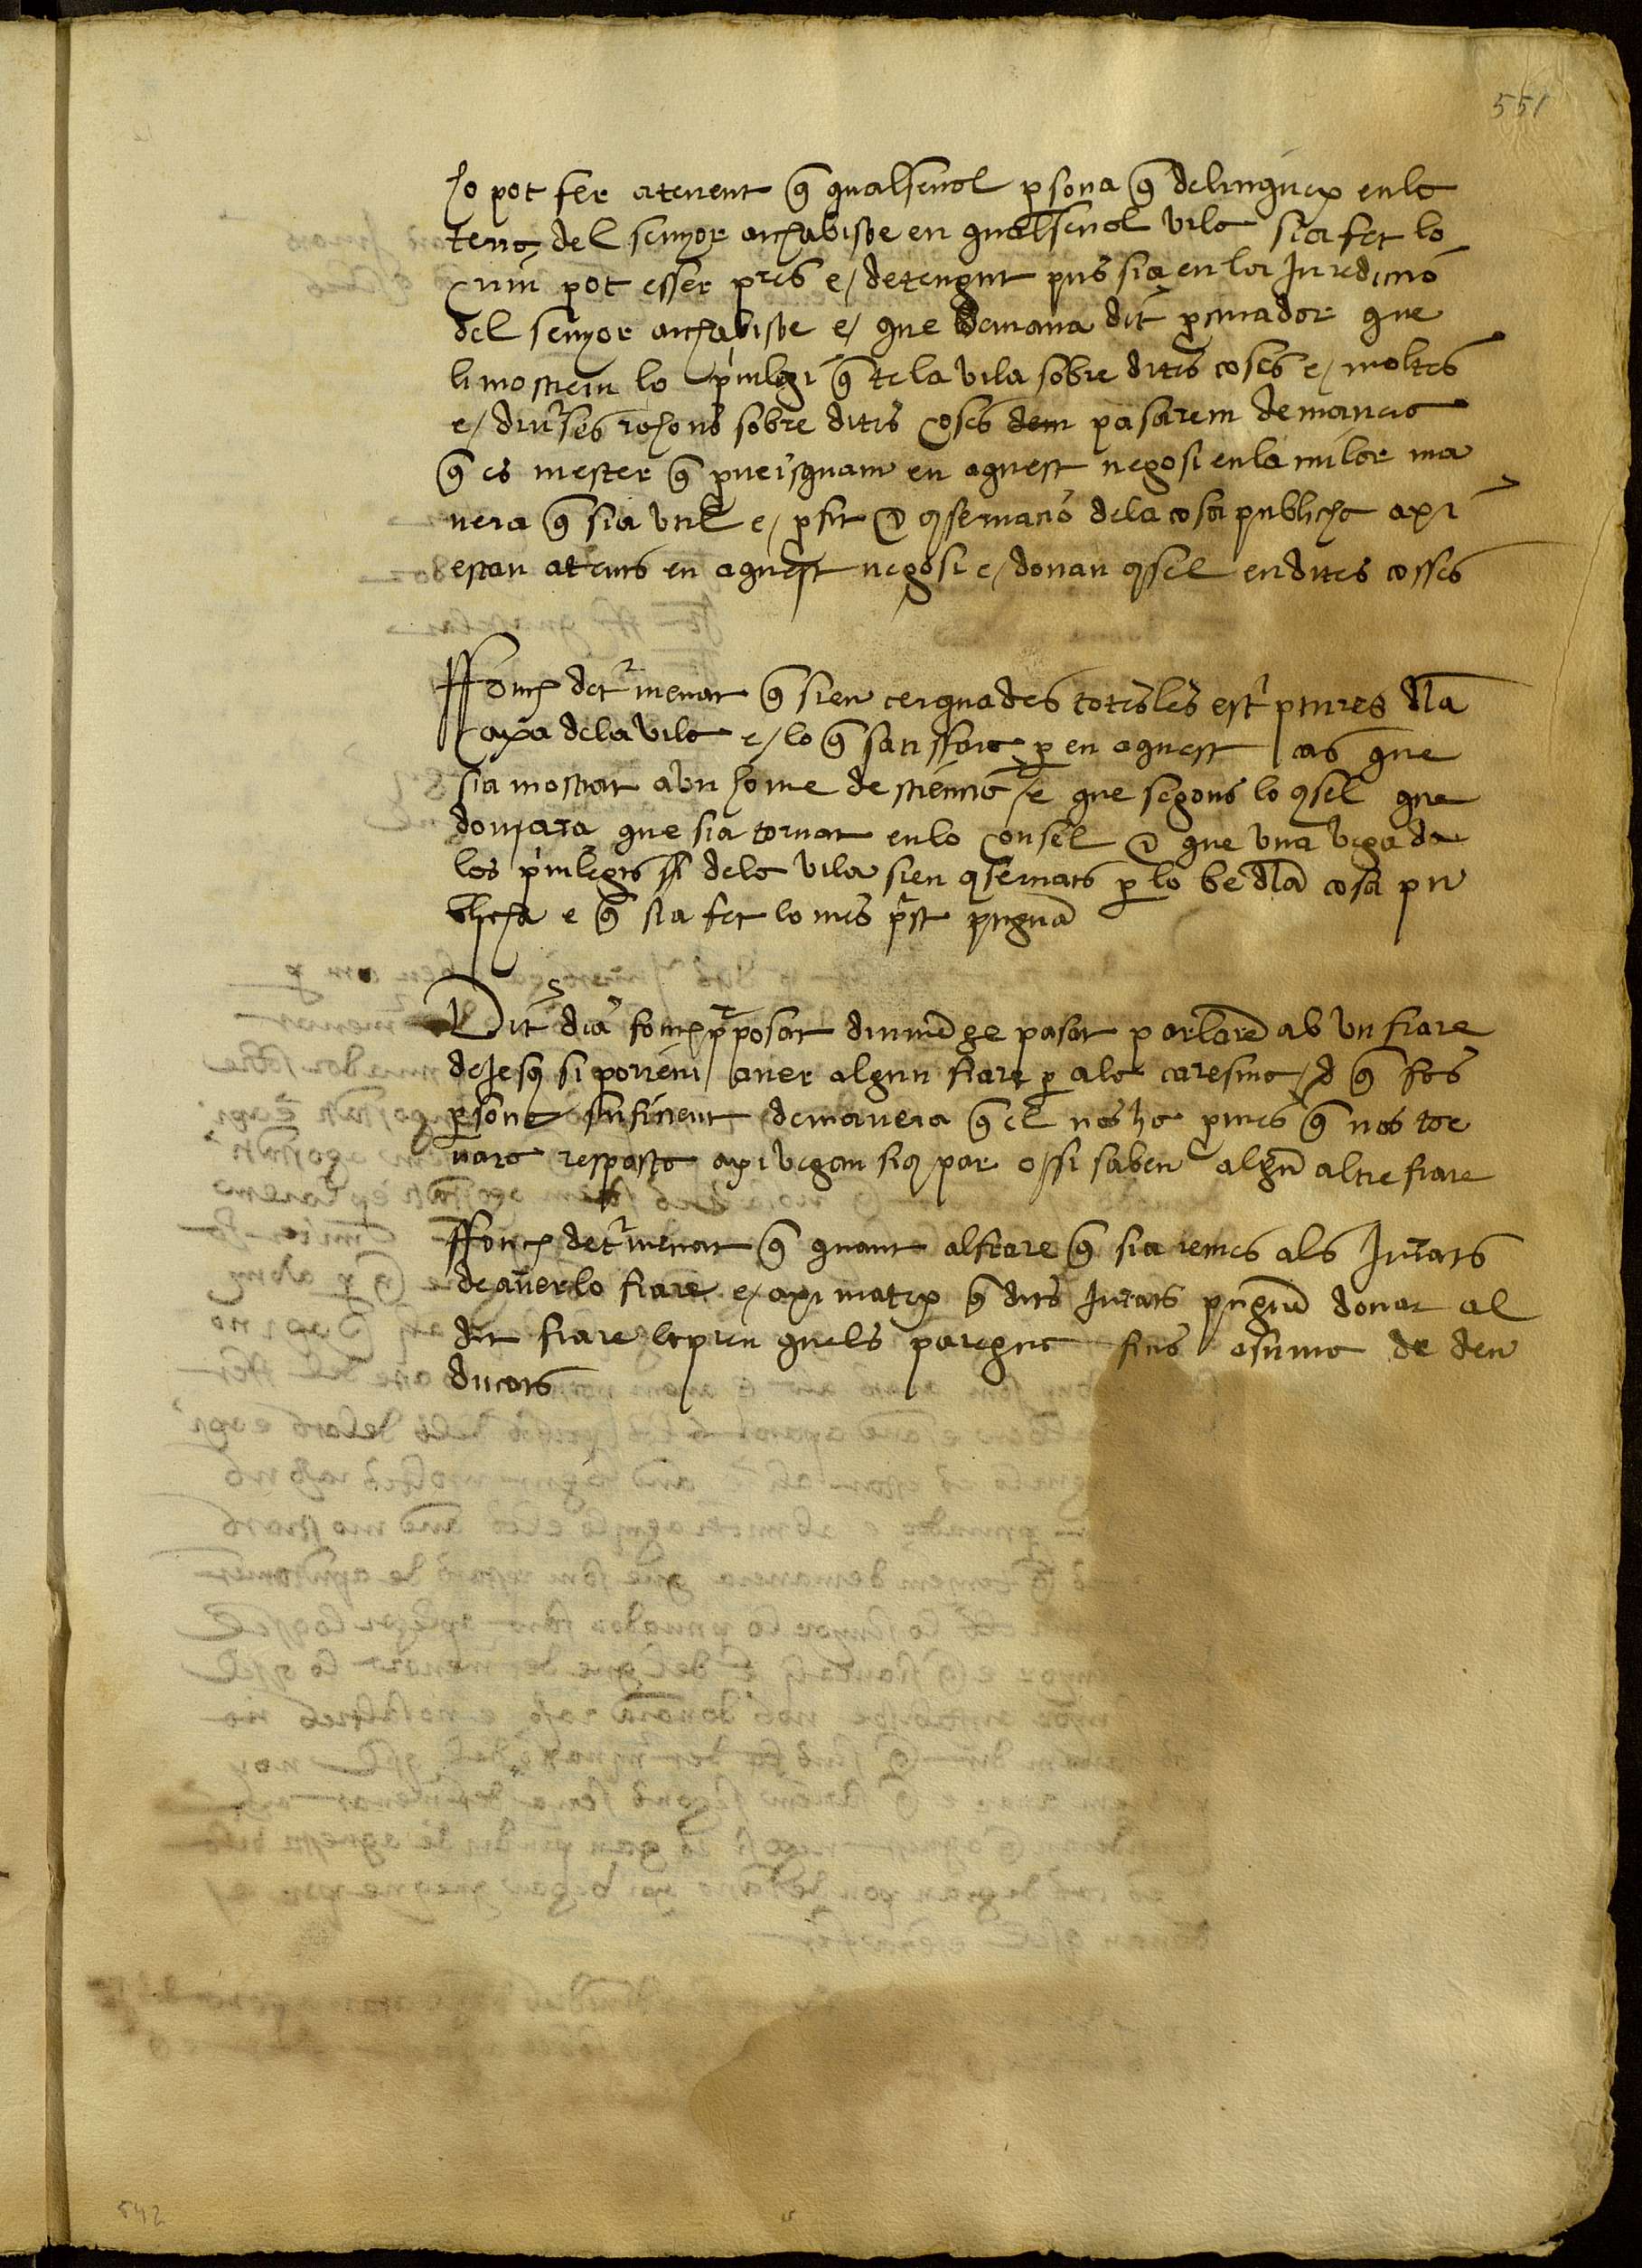 551
ho pot fer atenent q̃ qualsevol p̱sona q̃ delinquex en la
terra del senyor archabisbe en qualsevol vila sia fet lo
crim pot esser pres e / detengut pus sia en la Juredictio
del senyor archabisbe e / que demana dit p̱curador que
li mostrem lo p̱uilegi q̃ te la vila sobre dites coses e / moltes
e / diu̾ses rahons sobre dites coses dem pasarem de manera
q̃ es mester q̃ p̱veisquam en aquest negosi en la milor ma
nera q̃ sia util e / p̱fit & ꝯseruatio de la cosa publicha axi
estan atents en aquest negosi e / donan ꝯsel en dites cosses
Ffonch det̾menat q̃ sien cerquades totes les esc̾ptures dla
caxa de la vila e / lo q̃ sa ti ffara p̱ en aquest cas que
sia mostrat a vn home de sciencia / e que segons lo ꝯsel que
donara que sia tornat en lo consel & que vna vegada
los p̱uilegis de la vila sien ꝯseruats p̱ lo be dla cosa pu
blicha e q̃ sia fet lo mes p̱st pugua
Dit dia fonch p̱posat diumẽge pasat parlarẽ ab vn frare
de Jesus si porrem auer algun frare p̱ a la caresma / & q̃ fos
p̱sona suficient de manera q̃ el nos ha p̱mes q̃ nos tor
nara resposta axi vegan siꝯ par o ssi saben algũ altre frare
Ffonch det̾menat q̃ quant al frare q̃ sia remes als Jurats
de auer lo frare e / axi matex q̃ dits Jurats puguẽ donar al
dit frare lo preu quels paregue fins a suma de deu
ducats
542